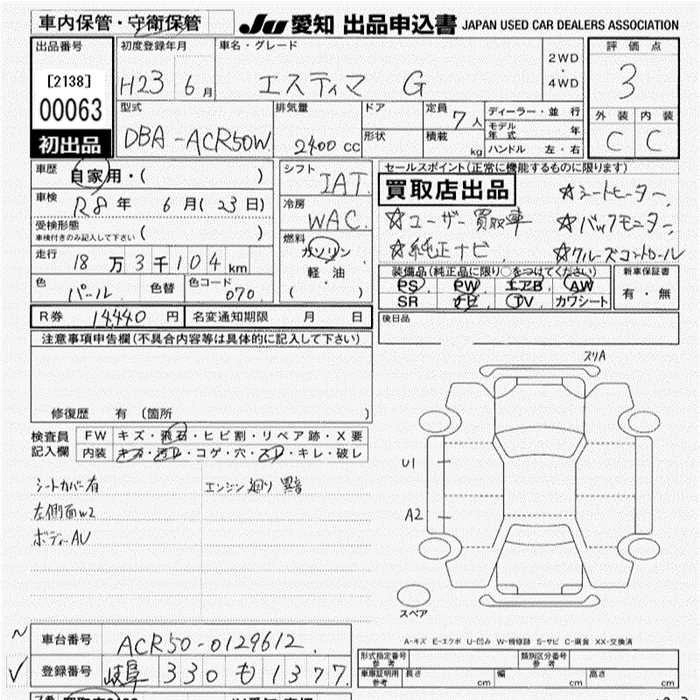 車内保管・守衛保管
JU 愛知 出品申込書 JAPAN USED CAR DEALERS ASSOCIATION
出品番号
[2138]
00063
初出品
初度登録年月
H23 6月
車名・グレード
エスティマ G
2WD
・
4WD
評価点
3
外装 内装
C C
型式
DBA-ACR50W
排気量
2400 cc
ドア
形状
定員
7人
積載
kg
ディーラー・並行
モデル年式 年
ハンドル 左・右
車歴
自家用・( )
車検
R8年 6月(23日)
受検形態
車検付きのみ記入して下さい ( )
走行
18万3千104km
色
パール
色替
色コード
070
シフト
IAT
冷房
WAC
燃料
ガソリン
軽油
( )
セールスポイント(正常に機能するものに限ります)
買取店出品
☆シートヒーター
☆ユーザー買取車
☆バックモニター
☆純正ナビ
☆クルーズコントロール
装備品(純正品に限り○をつけてください)
PS PW エアB AW
SR ナビ TV カワシート
新車保証書
有・無
R券 14,440円
名変通知期限 月 日
後日品
注意事項申告欄(不具合内容等は具体的に記入して下さい)
修復歴 有 (箇所 )
検査員
記入欄
FW キズ・飛石・ヒビ割・リペア跡・X要
内装 キズ・汚レ・コゲ・穴・スレ・キレ・破レ
シートカバー有
左側面W2
ボディーAU
エンジン廻り異音
スリA
U1
A2
スペア
A-キズ E-エクボ U-凹み W-補修跡 S-サビ C-腐食 XX-交換済
車台番号
ACR50-0129612
登録番号
岐阜 330 も 1377
形式指定番号
参考
類別区分番号
参考
車庫証明用
参考
長さ cm
幅 cm
高さ cm